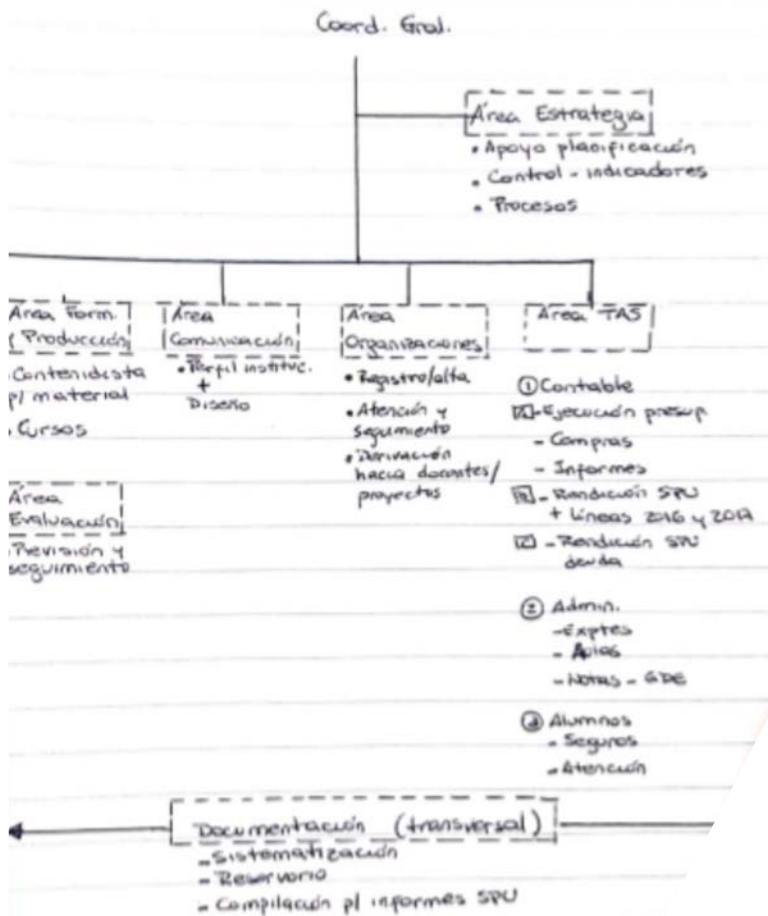 Coord. Gral.
Área Estrategia
• Apoyo planificación
• Control - indicadores
• Procesos
Área Form.
y Producción
Contenidista
p/ material
• Cursos
Área
Evaluación
Previsión y
seguimiento
Área
Comunicación
• Perfil instituc.
+
Diseño
Área
Organizaciones
• Registro/alta
• Atención y
seguimiento
• Derivación
hacia docentes/
proyectos
Área TAS
① Contable
A - Ejecución presup.
- Compras
- Informes
B - Rendición SPU
+ Líneas 2016 y 2017
C - Rendición SPU
deuda
② Admin.
- Exptes
- Notas - GDE
③ Alumnos
- Seguros
- Atención
Documentación (transversal)
- Sistematización
- Reservorio
- Compilación p/ informes SPU